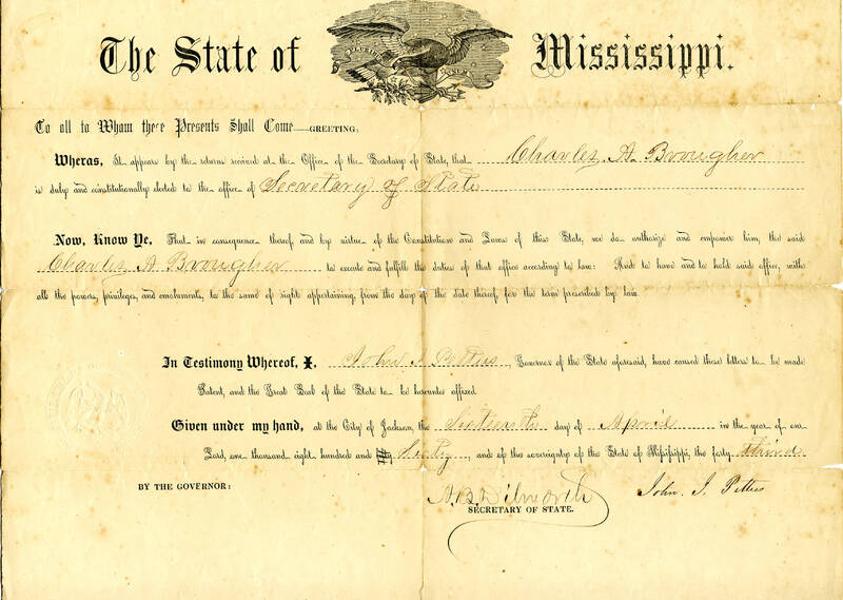 The State of Mississippi.
To all to Whom these Presents Shall Come—GREETING:
Wheras, It appears by the returns received at the Office of the Secretary of State, that Charles A. Brougher
is duly and constitutionally elected to the office of Secretary of State
Now, Know Ye, That in consequence thereof, and by virtue of the Constitution and Laws of this State, we do authorize and empower him, the said
Charles A Brougher to execute and fulfill the duties of that office according to law: And to have and to hold said office, with
all the powers, privileges, and emoluments, to the same of right appertaining, from the day of the date thereof, for the term prescribed by law.
In Testimony Whereof, I, John J. Pettus, Governor of the State aforesaid, have caused these letters to be made
Patent, and the Great Seal of the State to be hereunto affixed
Given under my hand, at the City of Jackson, the Sixteenth day of April in the year of our
Lord, one thousand eight hundred and Sixty, and of the sovereignty of the State of Mississippi, the forty
BY THE GOVERNOR:
A.B. Dilworth John. J. Pettus
SECRETARY OF STATE.